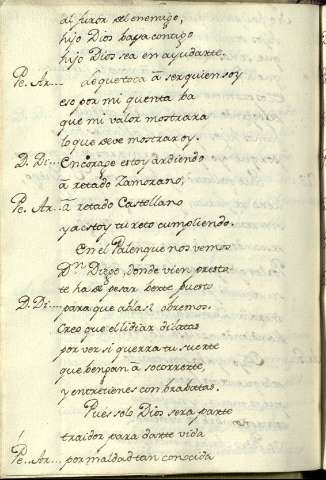 al furor del enemigo,
hijo Dios baya contigo
hijo Dios sea en ayudarte.
Pe. Ar... de que toca â ser quien soy
eso por mi quenta ba
que mi valor mostrara
lo que deve mostrar oy.
D. Di... En corage estoy ardiendo
â retado Zamorano,
Pe. Ar. â retado Castellano
ya estoy tu reto cumpliendo.
En el Palenque nos vemos
Dn. Diego, donde vien presto
te ha de pesar berte puesto
D. Di... para que ablas? obremos.
Creo que el lidiar dilatas
por ver si querra tu suerte
que bengan â socorrerte,
y entretienes con brabatas.
Pues solo Dios sera parte
traidor para darte vida
Pe. Ar... por maldad tan conocida